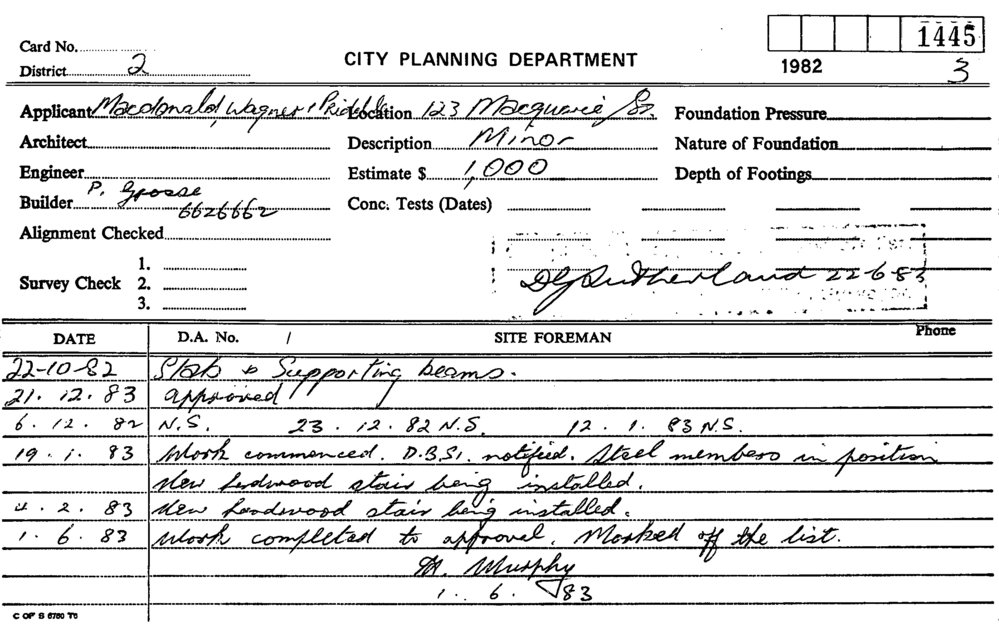 1445
Card No.
CITY PLANNING DEPARTMENT
1982
3
District 2
Applicant Macdonald, Wagner & Priddle Location 123 Macquarie St. Foundation Pressure
Architect Description Minor Nature of Foundation
Engineer Estimate $ 1,000 Depth of Footings
Builder P. Grosse 6626662 Conc. Tests (Dates)
Alignment Checked
1.
Survey Check 2.
3.
Sutherland 22-6-83
DATE D.A. No. / SITE FOREMAN Phone
22-10-82 Slab & Supporting beams.
21. 12. 83 approved
6. 12. 82 N.S. 23. 12. 82 N.S. 12. 1. 83 N.S.
19. 1. 83 Work commenced. D.B.S. notified. Steel members in position
New hardwood stair being installed.
4. 2. 83 New hardwood stair being installed.
1. 6. 83 Work completed to approval. Marked off the list.
Murphy
1. 6. 83
C OF S 6760 T6